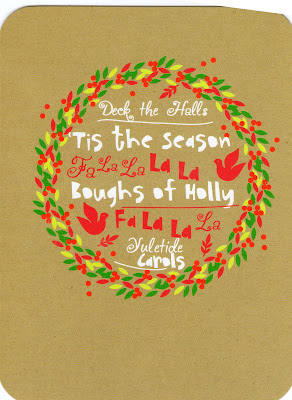 Deck the Halls
'Tis the season
Fa La La La La
Boughs of Holly
Fa La La La
Yuletide
Carols